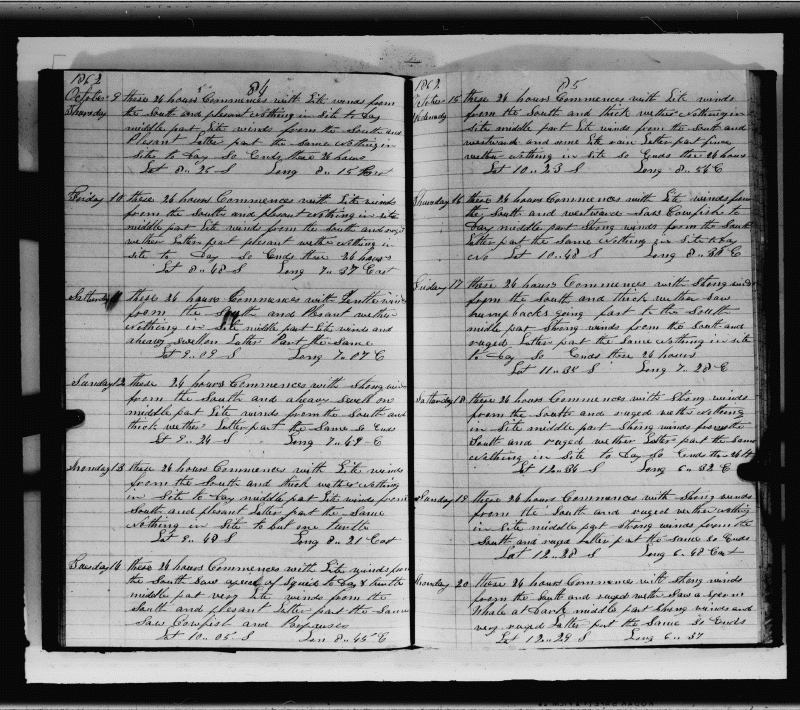 1862
84
October 9 these 24 hours Commences with Lite winds from
Thursday the South and plesent Nothing in Site to Day
middle part Lite winds from the South and
Plesant Latter part the same Nothing in
Site to Day So Ends these 24 hours
Lat 8 .. 25 S Long 8 .. 15 East
Friday 10 these 24 hours Commences with Lite winds
from the South and plesent Nothing in Site
middle part Lite winds from the South and
wether Latter part plesant wether Nothing in
Site to Day So Ends these 24 hours
Lat 8 .. 48 S Long 7 .. 37 East
Satturday 11 these 24 hours Commences with winds
from the South and Plesant wether
Nothing in Site middle part Lite winds and
aheavy Swell on Latter Part the Same
Lat 9 .. 09 S Long 7 .. 07 E
Sunday 12 these 24 hours Commences with Strong winds
from the South and aheavy Swell on
middle part Lite winds from the South and
thick wether Latter part the Same So Ends
Lat 9 .. 24 S Long 7 .. 49 E
Monday 13 these 24 hours Commences with Lite winds
from the South and thick wether Nothing
in Site to Day middle part Lite winds from
South and plesent Latter part the Same
Nothing in Site to but one turtle
Lat 9 .. 48 S Long 8 .. 21 East
Tuesday 14 these 24 hours Commences with Lite winds from
the South Saw apeice of Squid to Day & turtle
middle part very Lite winds from the
South and plesent Latter part the Same
Saw Cowfish and Porpuses
Lat 10 .. 05 S Lon 8 .. 45 E
1862
85
October 15 these 24 hours Commences with Lite winds
Wednesday from the South and thick wether Nothing in
Site middle part Lite winds from the South and
westward and some Lite rain Latter part
wether nothing in Site So Ends these 24 hours
Lat 10 .. 23 S Long 8 .. 56 E
Thursday 16 these 24 hours Commences with Lite winds from
the South and westward Saw Cowfish to
Day middle part Strong winds from the South
Latter part the Same Nothing in Site to Day
Lat 10 .. 48 S Long 8 .. 35 E
Friday 17 these 24 hours Commences with Strong winds
from the South and thick wether Saw
humpbacks going fast to the South
midle part Strong winds from the South and
raged Latter part the Same Nothing in site
to Day So Ends these 24 hours
Lat 11 .. 38 S Long 7 .. 28 E
Satturday 18 these 24 hours Commences with Strong winds
from the South and raged wether Nothing
in Site middle part Strong winds from the
South and raged wether Latter part the Same
Nothing in Site to Day So Ends the 24 h
Lat 12 .. 36 S Long 6 .. 32 E
Sunday 19 these 24 hours Commences with Strong winds
from the South and raged wether Nothing
in Site middle part Strong winds from the
South and raged Latter part the same So Ends
Lat 12 .. 28 S Long 6 .. 48 East
Monday 20 these 24 hours Commences with Strong winds
from the South and raged wether Saw a Sperm
Whale at Dark middle part Strong winds and
very raged Latter part the Same So Ends
Lat 12 .. 29 S Long 6 .. 37